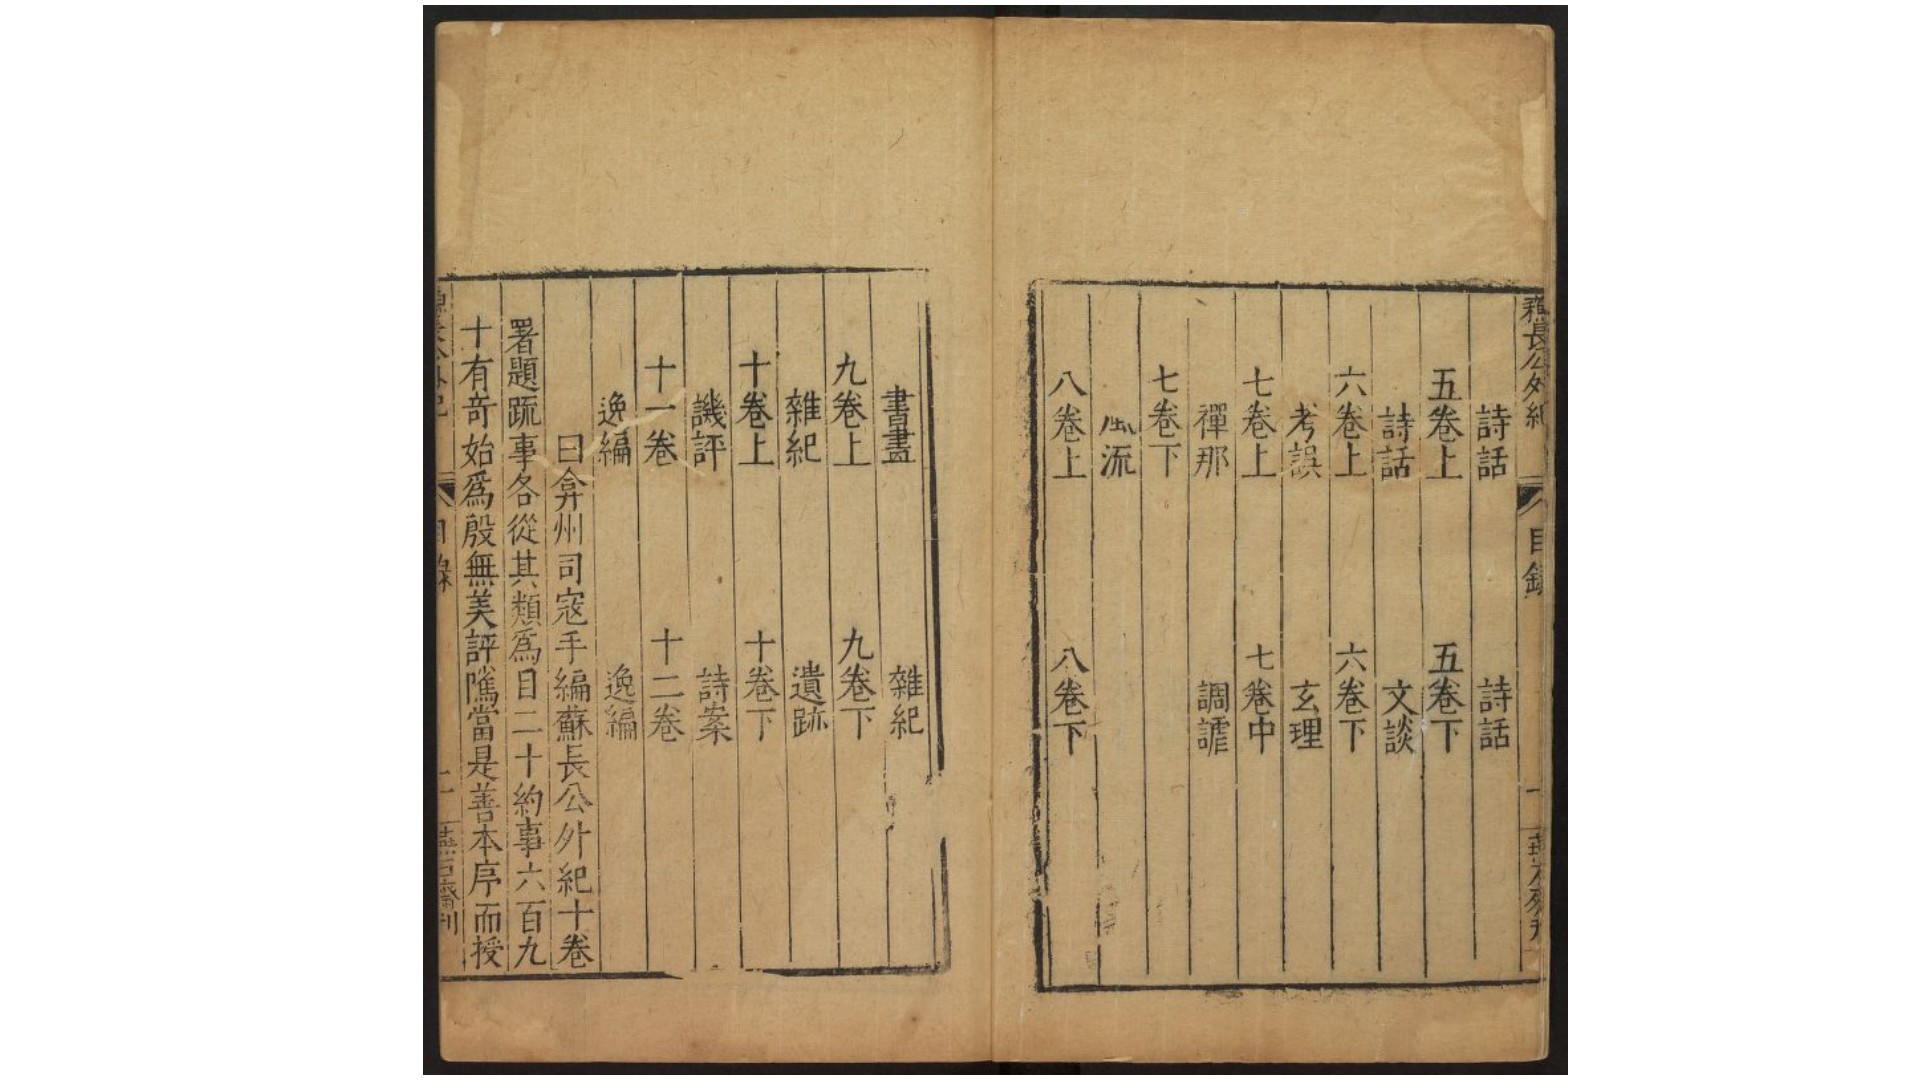 蘓長公外紀 目錄 一
詩話 詩話
五卷上 五卷下
詩話 文談
六卷上 六卷下
考誤 玄理
七卷上 七卷中
禪那 調謔
七卷下
風流
八卷上 八卷下
書畫 雜紀
九卷上 九卷下
雜紀 遺跡
十卷上 十卷下
譏評 詩案
十一卷 十二卷
逸編 逸編
曰弇州司寇手編蘇長公外紀十卷
署題疏事各從其類爲目二十約事六百九
十有奇始爲殷無美評隲當是善本序而授